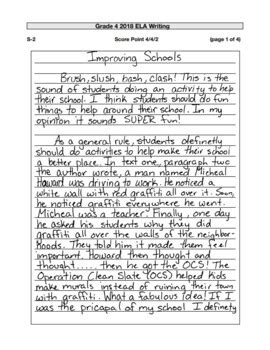 Grade 4 2016 ELA Writing
S-2 Score Point 4/4/2 (page 1 of 4)
Improving Schools
Brush, slush, bash, clash! This is the
sound of students doing an activity to help
their school. I think students should do fun
things to help around their school. In my
opinion it sounds SUPER fun!
As a general rule, students definetly
should do activities to help make their school
a better place. In text one, paragraph two
the author wrote, a man named Micheal
Howard was driving to work. He noticed a
white wall with red graffiti all over it. Soon,
he noticed graffiti everywhere he went.
Micheal was a teacher. Finally, one day
he asked his students why they did
graffiti all over the walls of the neighbor-
hoods. They told him it made them feel
important. Howard then thought and
thought..... then he got the OCS! The
Operation Clean Slate (OCS) helped kids
make murals instead of ruining their town
with graffiti. What a fabulous idea! If I
was the pricapal of my school I definety